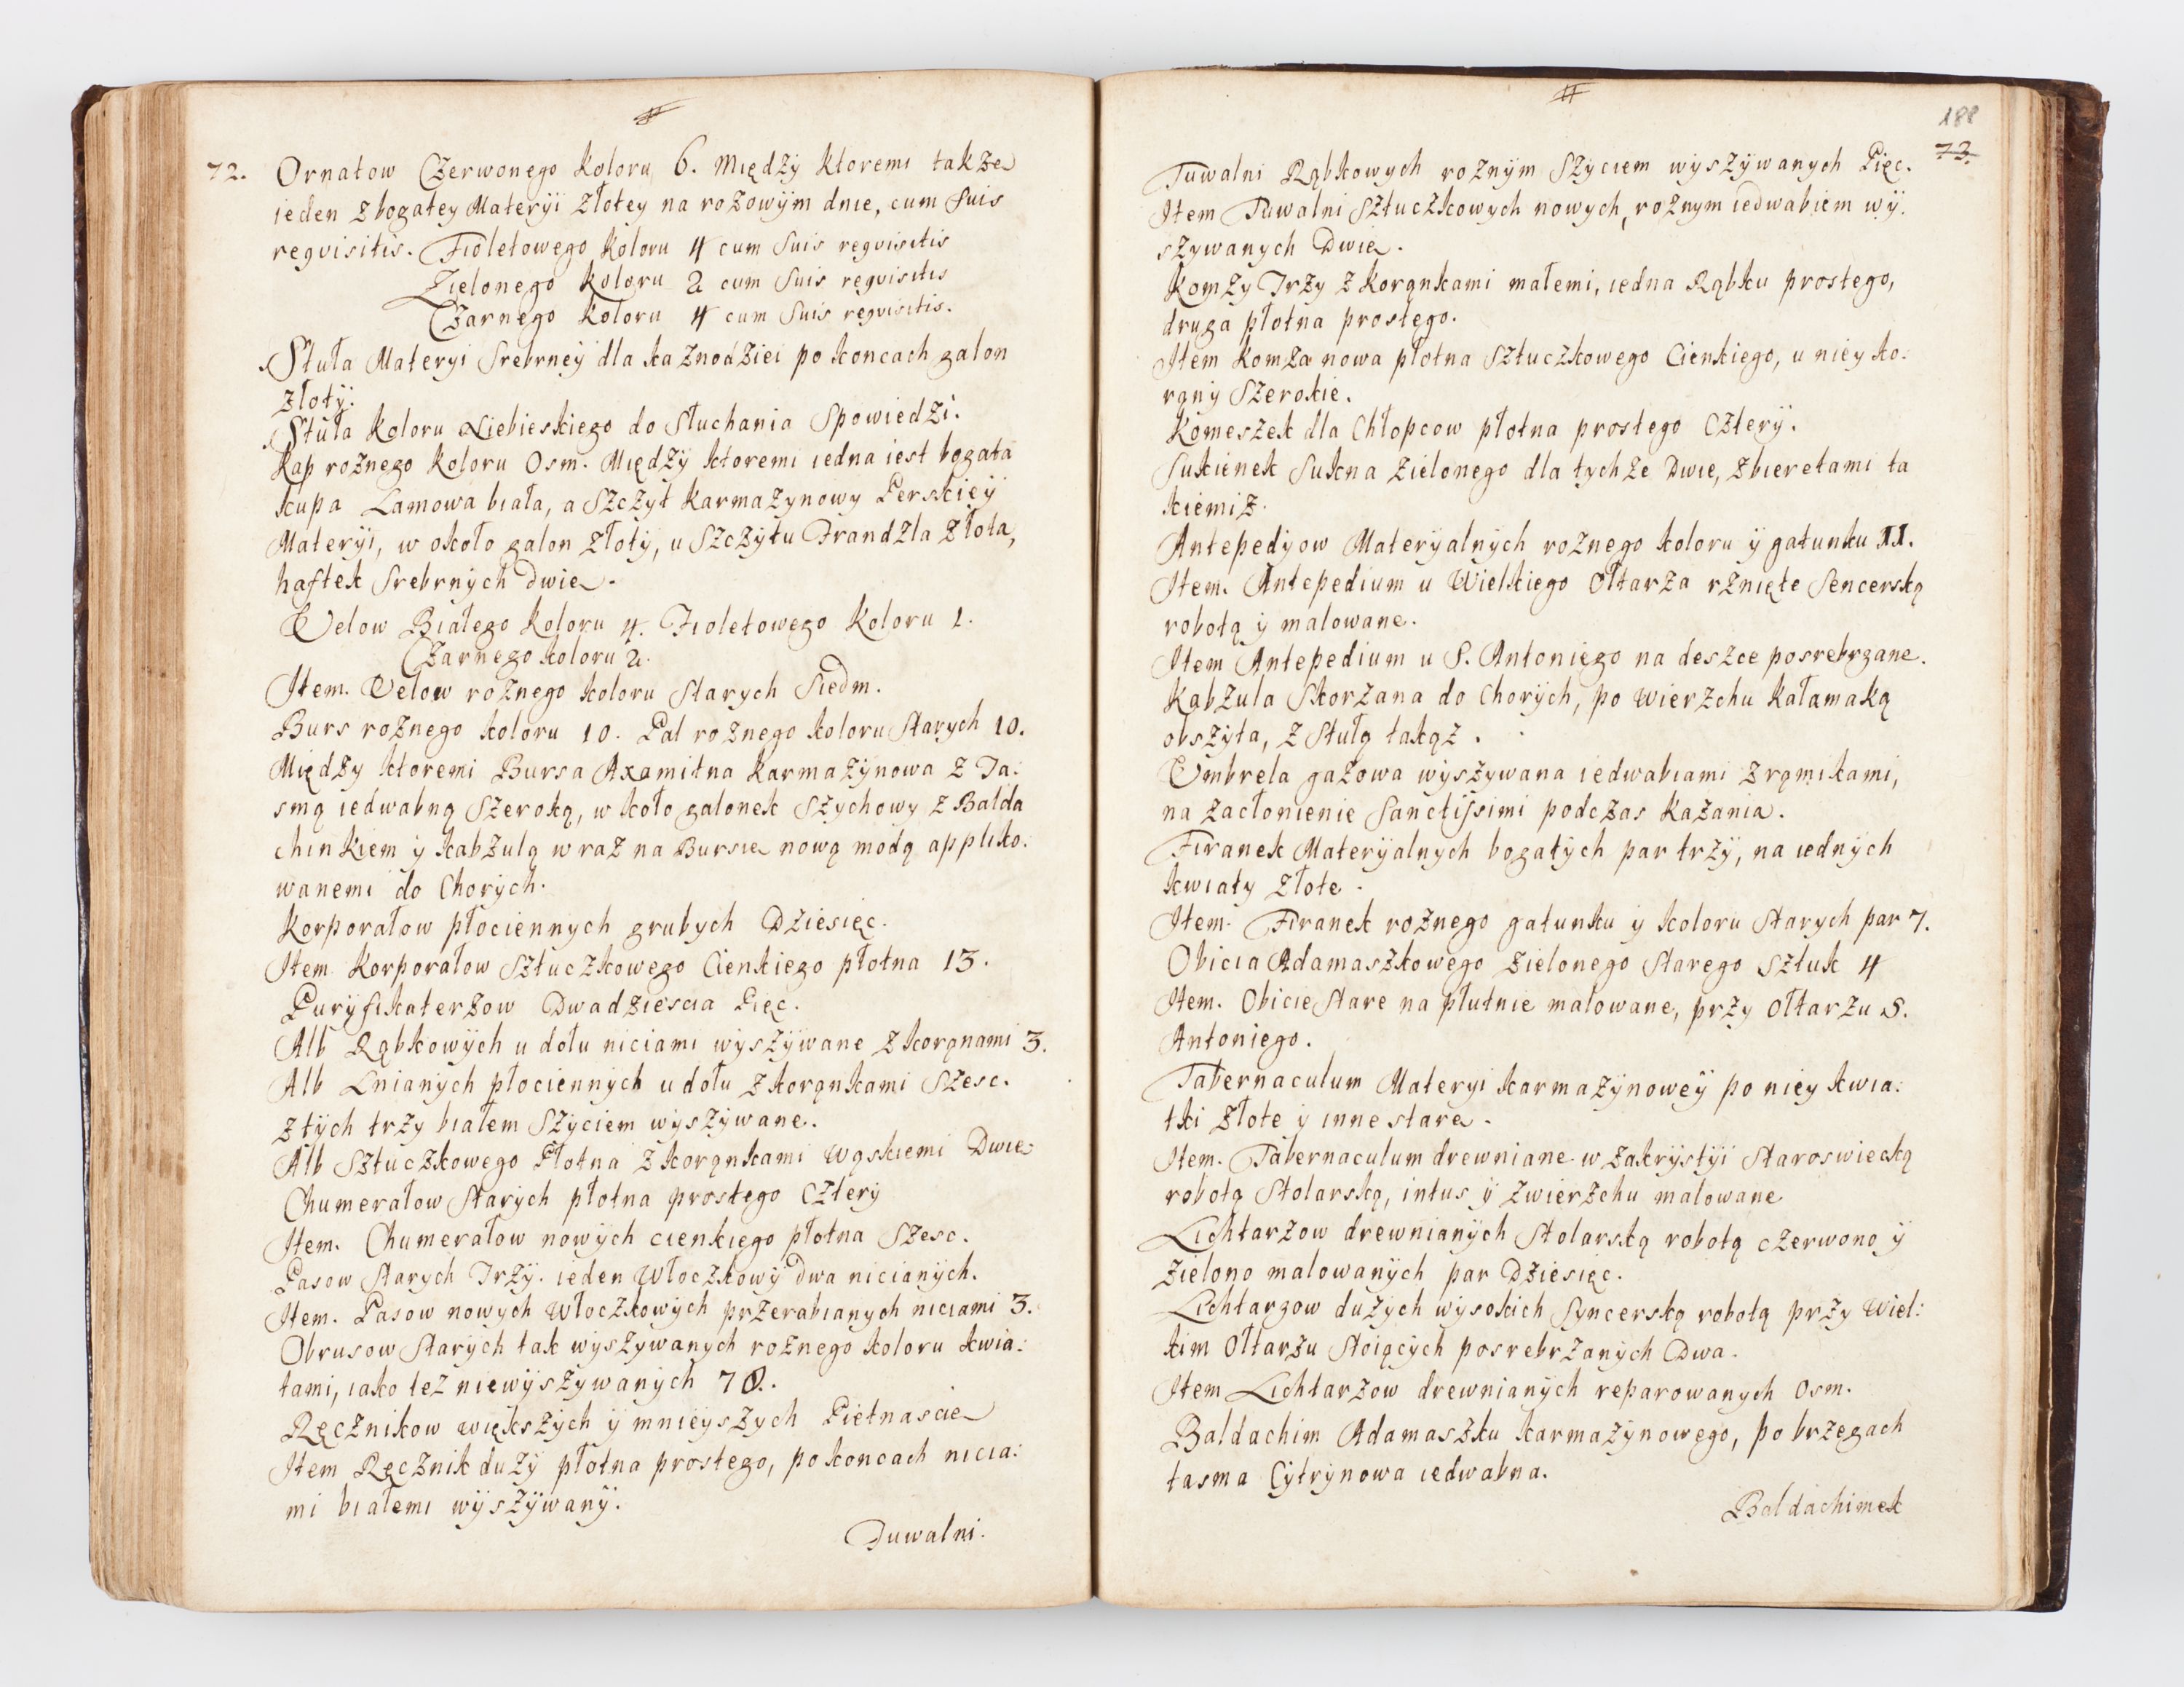 72. Ornatow Czerwonego koloru 6. Między ktoremi także
ieden z bogatey Materyi złotey na rożowÿm dnie, cum suis
reqvisitis. Fioletowego koloru 4 cum suis reqvisitis
Zielonego koloru 2 cum suis reqvisitis
Czarnego koloru 4 cum suis reqvisitis.
Stuła Materyi Srebrneÿ dla kaznodziei po koncach galon
złotÿ.
Stuła koloru Niebieskiego do Słuchania Spowiedzi.
Kap rożnego koloru Osm. Międzÿ ktoremi iedna iest bogata
kupa Lamowa biała, a Szczyt karmazynowy Perskieÿ
Materÿi, w około galon złotÿ, u Szczÿtu Frandzla złota,
haftek Srebrnÿch Dwie.
Velow Białego koloru 4. Fioletowego koloru 1.
Czarnego koloru 2.
Item. Velow rożnego koloru Starych Siedm.
Burs rożnego koloru 10. Pal rożnego koloru Starych 10.
Między ktoremi Bursa Axamitna karmazÿnowa z Ta:
smą iedwabną Szeroką, w koło galonek Szychowy z Balda
chinkiem ÿ kabzulą wraz na Bursie nową modą appliko:
wanemi do Chorÿch.
Korporałow płociennych grubych Dziesięc.
Item Korporałow Sztuczkowego Cienkiego płotna 13.
Puryfikaterzow Dwadziescia Pięc.
Alb Rąbkowÿch u dołu niciami wÿszÿwane z korąnami 3.
Alb Lnianÿch płociennÿch u dołu z korąnkami Szesc.
z tÿch trzy białem Szÿciem wyszÿwane.
Alb Sztuczkowego Płotna z korąnkami wąskiemi Dwie
Chumerałow Starÿch płotna prostego cztery
Item. Chumerałow nowÿch cienkiego płotna Szesc.
Pasow Starÿch Trzÿ. ieden Włoczkowÿ Dwa nicianÿch.
Item. Pasow nowych Włoczkowÿch przerabianych niciami 3.
Obrusow Starÿch tak wÿszywanÿch rożnego koloru kwia:
tami, iako też niewyszÿwanÿch 70.
Ręcznikow większÿch ÿ mnieyszych Pietnascie
Item Ręcznik duży płotna prostego, po koncach nicia:
mi białemi wÿszÿwanÿ.
Tuwalni.
188
73.
Tuwalni Rąbkowych rożnÿm Szÿciem wÿszÿwanych Pięc.
Item Tuwalni Sztuczkowych nowych, rożnym iedwabiem wÿ:
szywanych Dwie.
Komży Trzy z korąnkami małemi, iedna Rąbku prostego,
druga płotna prostego.
Item Komża nowa płotna Sztuczkowego Cienkiego, u nieÿ ko:
ranÿ Szerokie.
Komeszek dla Chłopcow płotna prostego czterÿ.
Sukienek Sukna zielonego dla tychże Dwie, z bieretami ta
kiemiż.
Antepedÿow Materÿalnÿch rożnego koloru ÿ gatunku 11.
Item. Antepedium u Wielkiego Ołtarza rżnięte Sencerską
robotą ÿ malowane.
Item Antepedium u S. Antoniego na deszce posrebrzane.
Kabzula Skorzana do Chorÿch, po wierzchu kałamaką
obszÿta, z Stułą takąż.
Umbrela gazowa wÿszywana iedwabiami z rąmikami,
na zacłonienie Sanctissimi podczas Kazania.
Firanek Materÿalnych bogatÿch par trzÿ, na iednÿch
kwiaty złote.
Item. Firanek rożnego gatunku ÿ koloru Starych par 7.
Obicia Adamaszkowego zielonego Starego sztuk 4
Item. Obicie Stare na płutnie malowane, przy Ołtarzu S.
Antoniego.
Tabernaculum Materyi karmazÿnoweÿ po niey kwia:
tki złote ÿ inne stare.
Item. Tabernaculum drewniane w zakrÿstÿi Staroswiecką
robotą Stolarską, intus ÿ zwierzchu malowane
Lichtarzow drewnianÿch Stolarską robotą czerwono ÿ
zielono malowanÿch par Dziesięc.
Lichtarzow dużÿch wÿsokich Syncerską robotą przy Wiel:
kim Ołtarzu Stoiącÿch posrebrzanÿch Dwa.
Item Lichtarzow drewnianÿch reparowanych Osm.
Baldachim Adamaszku karmazÿnowego, po brzegach
tasma Cÿtrÿnowa iedwabna.
Baldachimek